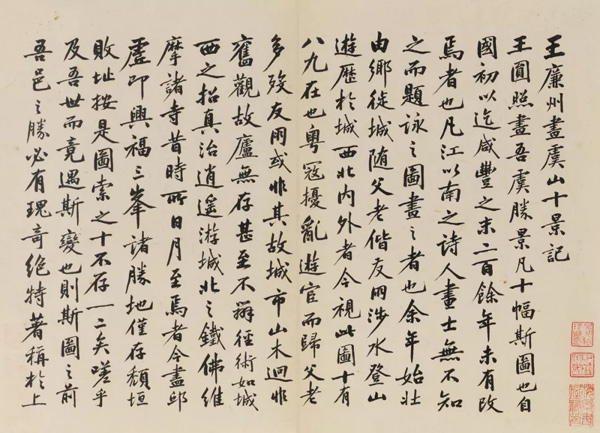 王廉州畫虞山十景記
王圓照畫吾虞勝景凡十幅斯圖也自
國初以迄咸豐之末二百餘年未有改
焉者也凡江以南之詩人畫士無不知
之而題詠之圖畫之者也余年始壯
由鄉徙城随父老偕友朋涉水登山
遊歷於城西北內外者今視此圖十有
八九在也粵寇擾亂遊宦而歸父老
多歿友朋或非其故城市山木迥非
舊觀故廬無存甚至不辨徑術如城
西之招真治逍遥游城北之鐵佛維
摩諸寺昔時所日月至焉者今盡邱
虛即興福三峯諸勝地僅存頹垣
敗址按是圖索之十不存一二矣嗟乎
及吾世而竟遇斯變也則斯圖之前
吾邑之勝必有瑰奇絕特著稱於上